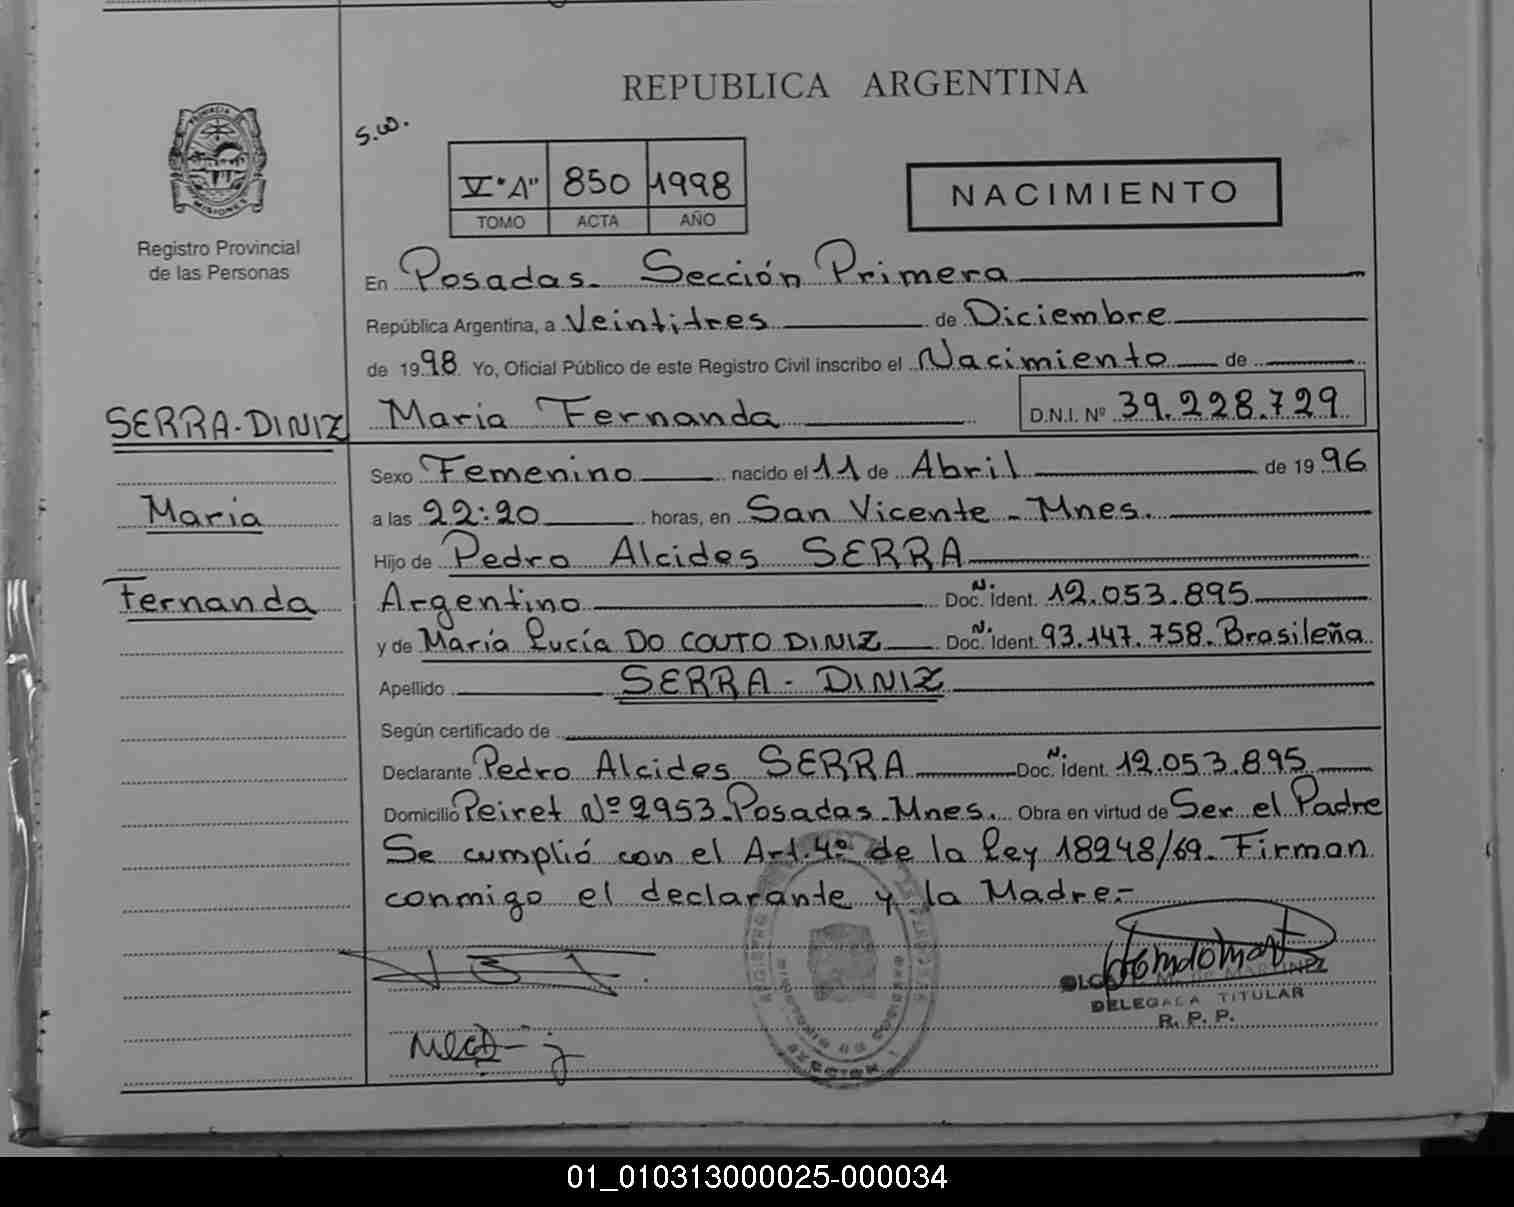 REPUBLICA ARGENTINA
s.w.
V "A" 850 1998
TOMO ACTA AÑO
NACIMIENTO
PROVINCIA DE
MISIONES
Registro Provincial
de las Personas
En Posadas. Sección Primera
República Argentina, a Veintitres de Diciembre
de 1998 Yo, Oficial Público de este Registro Civil inscribo el Nacimiento de
SERRA-DINIZ Maria Fernanda D.N.I. Nº 39.228.729
Sexo Femenino nacido el 11 de Abril de 1996
Maria a las 22:20 horas, en San Vicente - Mnes.
Hijo de Pedro Alcides SERRA
Fernanda Argentino Doc. N. Ident. 12.053.895
y de María Lucía DO COUTO DINIZ Doc. N. Ident. 93.147.758. Brasileña
Apellido SERRA - DINIZ
Según certificado de
Declarante Pedro Alcides SERRA Doc. N. Ident. 12.053.895
Domicilio Peiret Nº 2953. Posadas. Mnes. Obra en virtud de Ser el Padre
Se cumplió con el Art. 4º de la Ley 18248/69. Firman
conmigo el declarante y la Madre.-
MARTINEZ
DELEGADA TITULAR
R. P. P.
SECCION 1
01_010313000025-000034